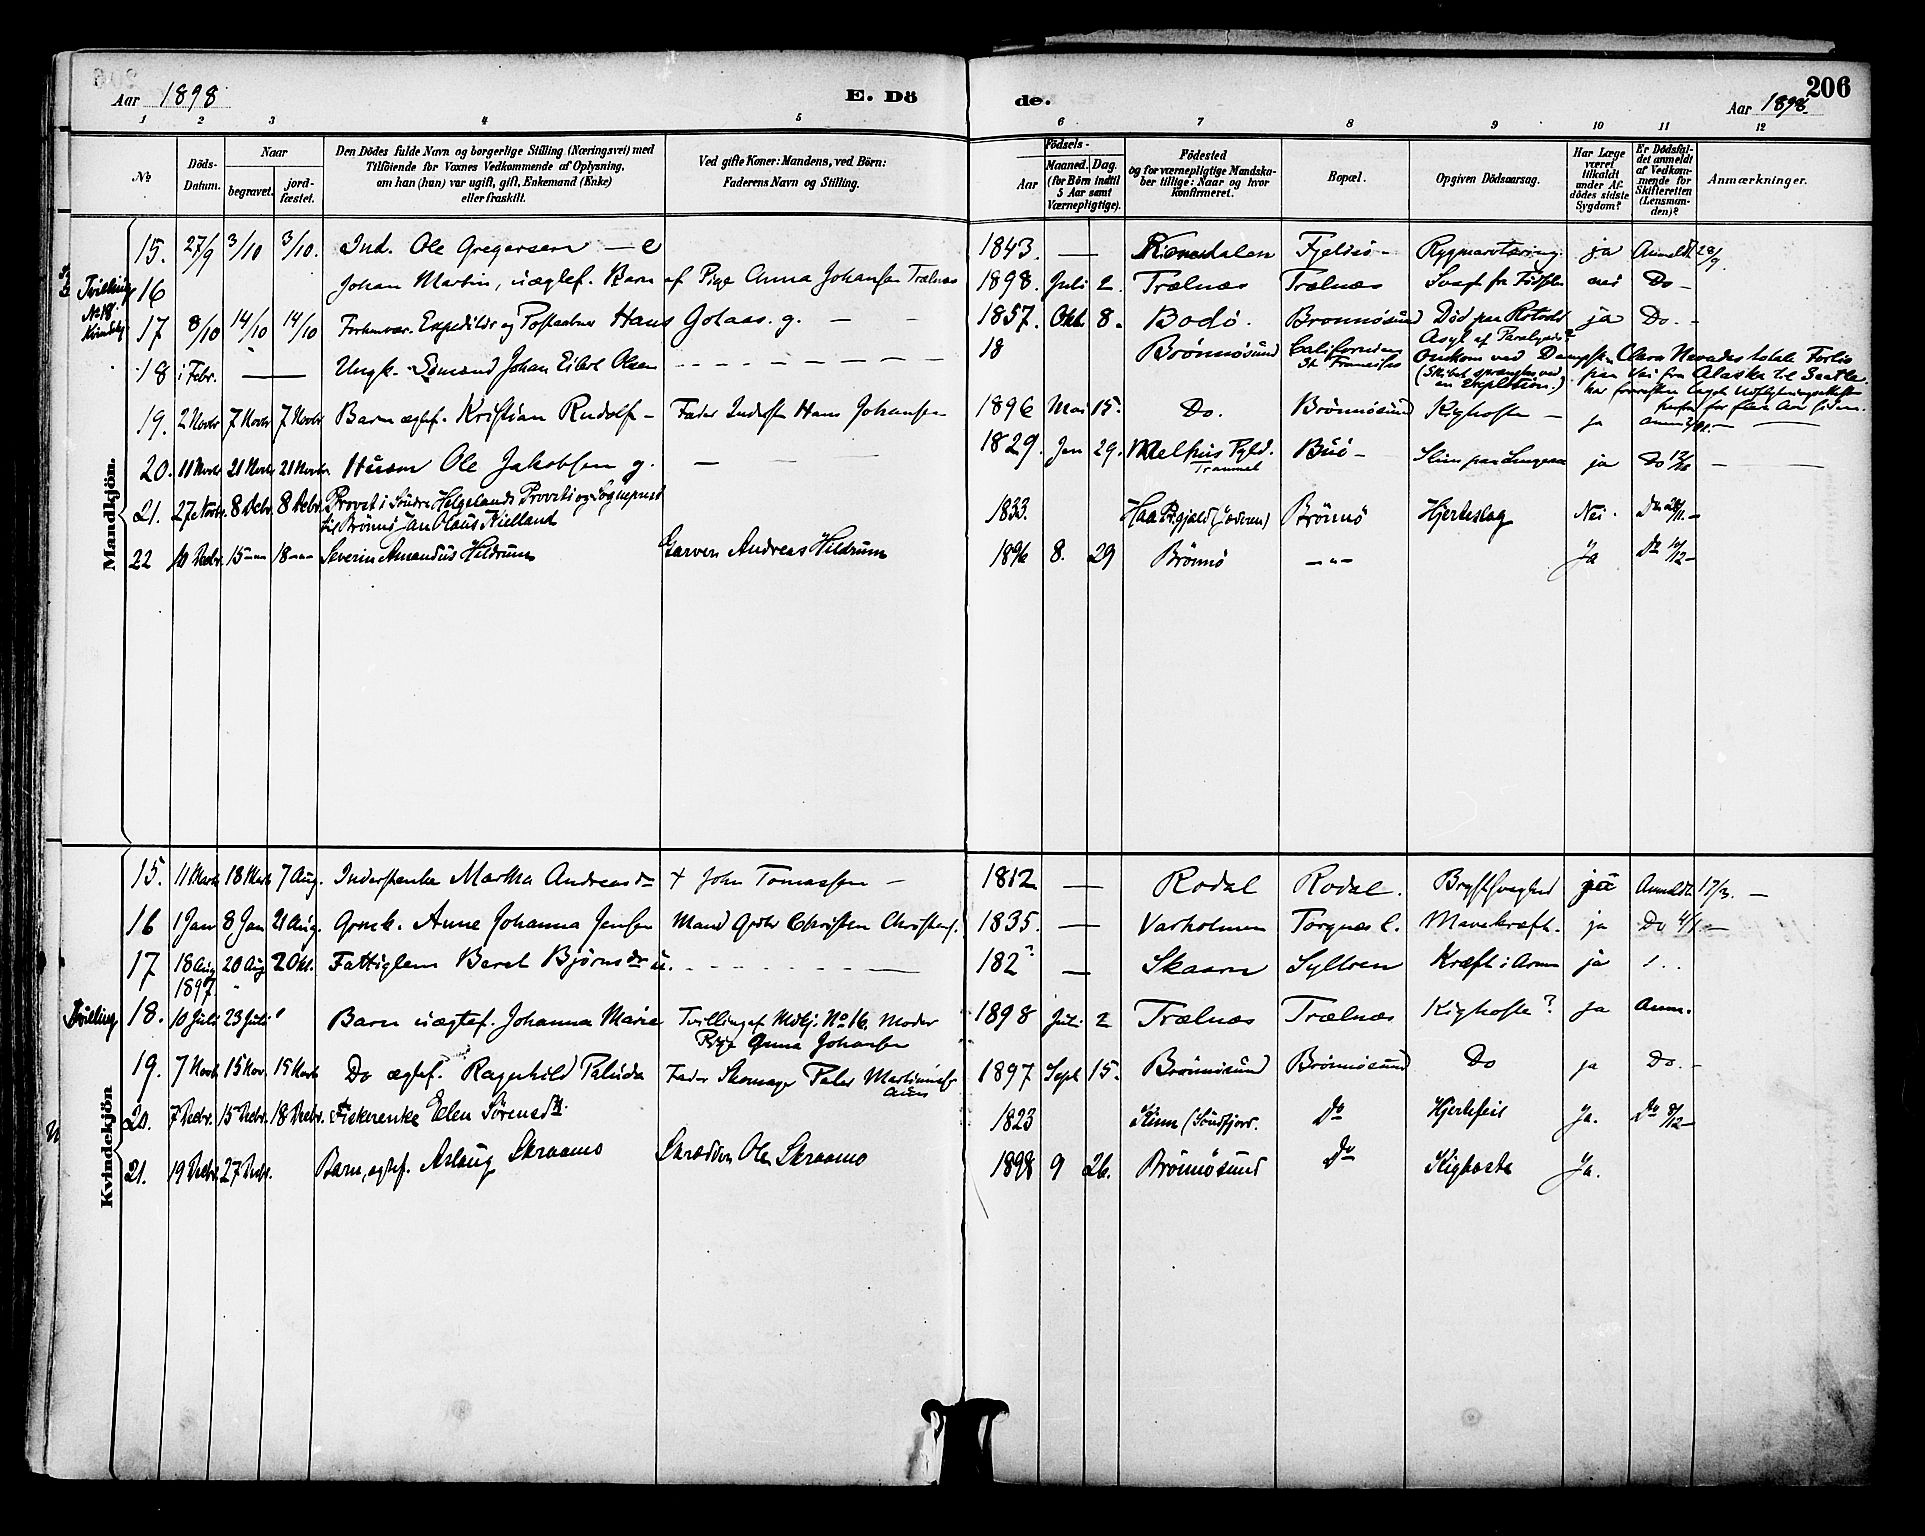 Aar 1898
E. Dö
de.
206
Aar 1898.
1 2 3 4 5 6 7 8 9 10 11 12
No
Döds-
Datum.
Naar
begravet.
jord-
fæstet.
Den Dödes fulde Navn og borgerlige Stilling (Næringsvei) med
Tilföiende for Voxnes Vedkommende af Oplysning,
om han (hun) var ugift, gift, Enkemand (Enke)
eller fraskilt.
Ved gifte Koner: Mandens, ved Börn:
Faderens Navn og Stilling.
Födsels-
Aar
Maaned.
Dag.
(for Börn indtil
5 Aar samt
Værnepligtige).
Födested
og for værnepligtige Mandska-
ber tillige: Naar og hvor
konfirmeret.
Bopæl.
Opgiven Dödsaarsag.
Har Læge
været
tilkaldt
under Af-
dödes sidste
Sygdom?
Er Dödsfal-
det anmeldt
af Vedkom-
mende for
Skifteretten
(Lensman-
den)?
Anmærkninger.
Mandkjön.
15. 27/9 3/10 3/10. Ind. Ole Gregersen — e 1843. — Fjeldsö - Rygmarvtæring. ja Anmeldt 28/9.
Tvilling No 18. Kvindekj
16 Johan Martin, uægtef. Barn af Pige Anna Johansen Trælnæs 1898. Juli 2. Trælnæs Trælnæs Svagt fra Fødselen nei Do -
17 8/10 14/10 14/10 Forhenvær. Expeditör og Postaabner Hans Golaas. g. — - 1857. Okt. 8. Bodö. Brønnøsund Död paa Rotvold ja Do. -
Asyl af Paralysis?
18 i Febr. — Ungk. Edmund Johan Eibert Olsen - - - - 18 Brönnösund Californien St. Francisco Omkom ved Dampsk. Clara Nevadas total Forlis
(Skibet sprængtes ved en Explosion.) paa Vei fra Alaska til Seatle.
har forresten taget Udflytningsattest
herfra for flere Aar siden.
19. 2 Novbr 7 Novbr 7 Novbr Barn ægtef. Kristian Rudolf - Fader Inderst Hans Johansen 1896 Mai 15. Do. Brönnösund Kighoste - ja
20. 11 Novbr 21 Novbr 21 Novbr Husm Ole Jakobsen g. — 1829. Jan 29. Melhus Pgld. Buö - ja Do —
21. 27de Novbr. 8 Decbr. 8 Decbr. Provst i Söndre Helgelands Provsti og Sognepræst
til Brönnö Jan Olaus Kielland 1833. Haa Pgjæld (Jæderen) Brönnö Hjerteslag Nei - Do 28/11 -
22 10 Decbr. 15 — 18 — Severin Amandus Hildrum Garver Andreas Hildrum 1896 8. 29 Brönnö — " — Ja Do 10/12 -
Kvindekjön
15. 11 Marts 18 Marts 7 Aug. Inderstenke Martha Andreasdr + John Tomassen — 1812 — Rodal Rodal. Brystsvaghed ja Anmeldt 17/3. —
16 1 Jan 8 Jan 21 Aug. Grmk. Anne Johanna Jensen Mand Grdbr Christen Christens. 1835. — Varholmen Torgnæs e. Mavekræft. ja Do 4/1 —
17 18 Aug 1897. 20 Aug 2 Okt. Fattiglem Beret Björnsdr u. - - - — 182? — Skaarn Syltern Kræft i Armen ja
Tvilling 18. 10 Juli 23 Juli " Barn uægtef. Johanna Marie Tvilling af Mdkj. No 16. Moder
Pige Anna Johansen 1898 Juli 2 Trælnæs Trælnæs Kighoste? ja Anm.
19. 7 Novb 15 Nov. 15 Novb Do ægtef. Ragnhild Palude Fader Skomager Peder Martinius. 1897 Sept 15. Brönnösund Brönnösund Do ja Do. -
20. 7 Decbr. 15 Decbr. 18 Decbr. Fiskerenke Elen Sörensdtr. 1823 Kinn (Söndfjord. Do Hjertefeil Ja. Do 8/12 -
21. 19 Decbr. 27 Decbr. Barn, ægtef. Aslaug Skraamo Skrædder Ole Skraamo 1898 9 26. Brönnösund Do Kighoste Ja.